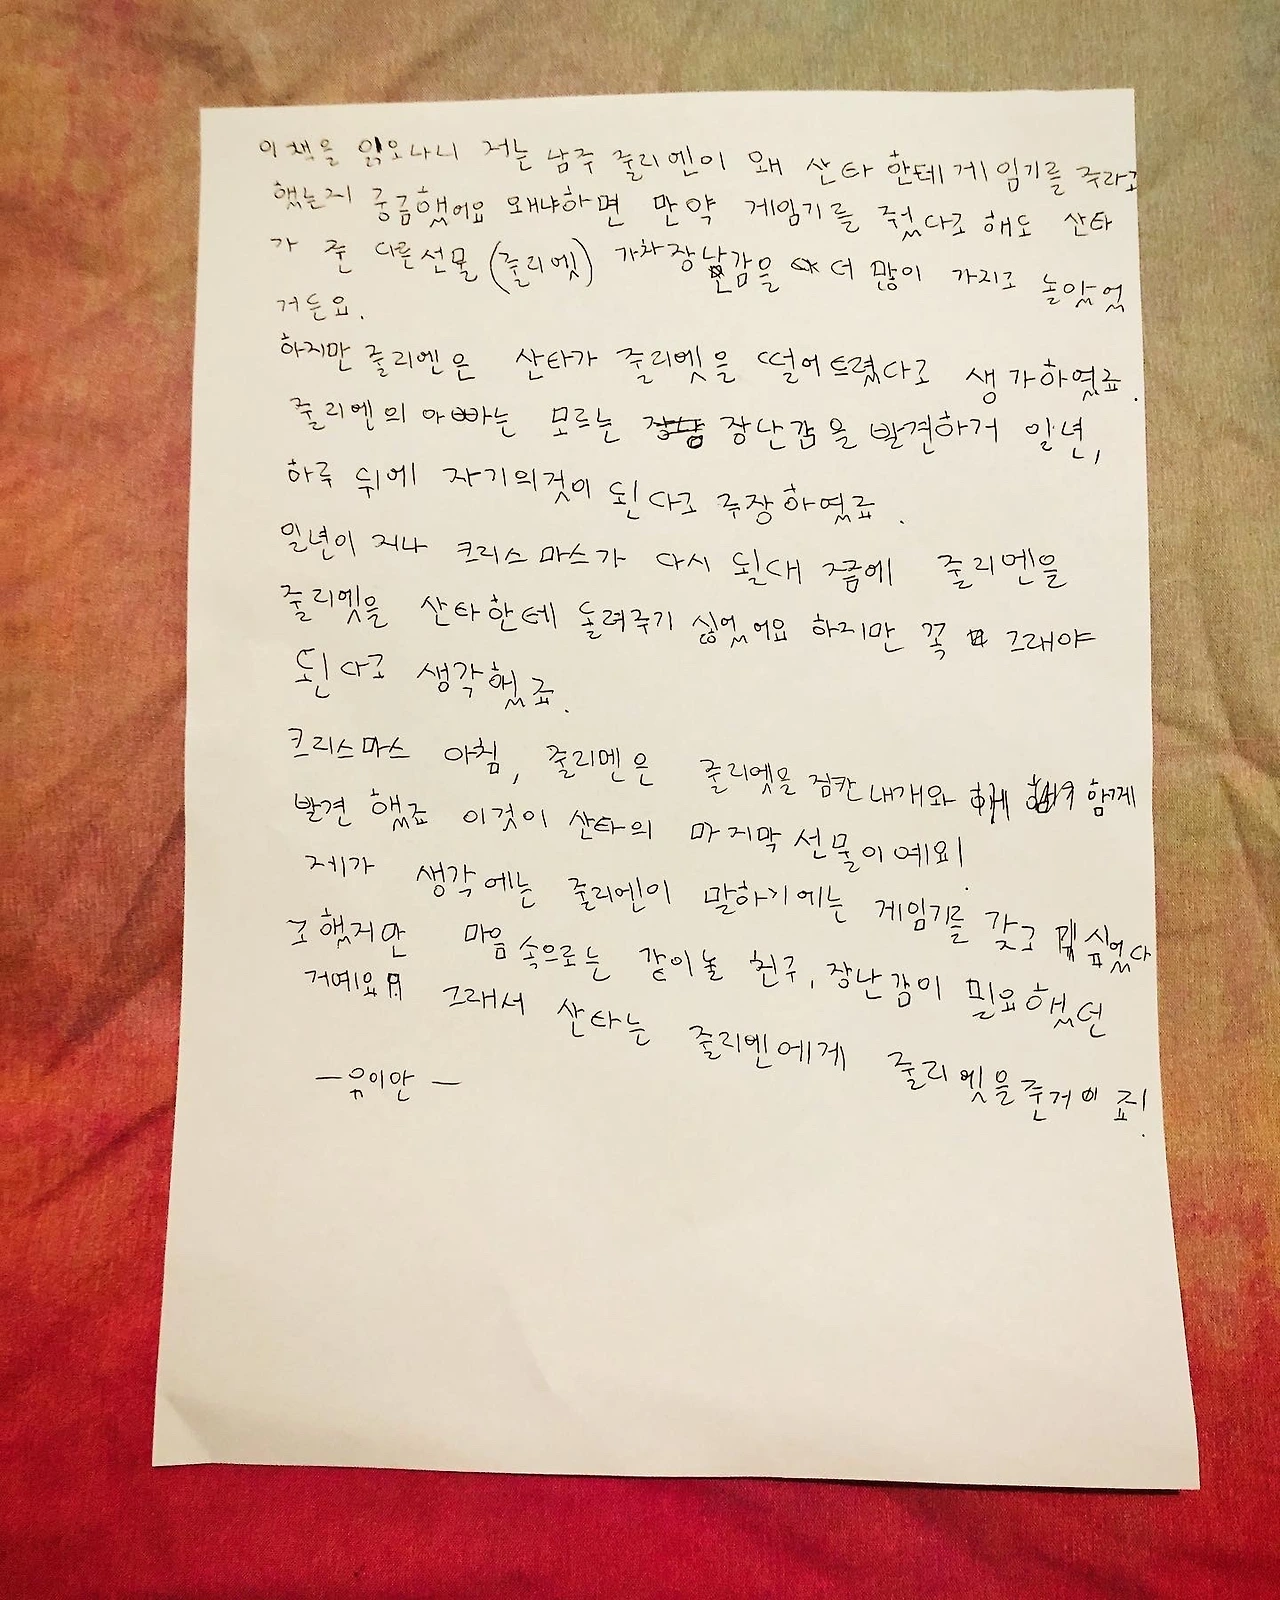 이 책을 읽으나니 저는 남주 줄리엔이 왜 산타 한테 게임기를 주라고
했는지 궁금했어요 왜냐하면 만약 게임기를 줬다고 해도 산타
가 준 다른선물 (줄리엣) 가차장난감을 더 많이 가지고 놀았었
거든요.
하지만 줄리엔은 산타가 줄리엣을 떨어트렸다고 생가하였죠.
줄리엔의 아빠는 모르는 장난감을 발견하거 일년,
하루 뒤에 자기의것이 된다고 주장하였죠.
일년이 지나 크리스마스가 다시 될대 쯤에 줄리엔을
줄리엣을 산타한테 돌려주기 싫었어요 하지만 꼭 그래야
된다고 생각했죠.
크리스마스 아침, 줄리엔은 줄리엣을 점칸내개와 함께
발견 했죠 이것이 산타의 마지막 선물이예요!
제가 생각에는 줄리엔이 말하기에는 게임기를 갖고 싶었다
고했지만 마음속으로는 같이놀 친구, 장난감이 필요했던
거예요 그래서 산타는 줄리엔에게 줄리엣을준거이죠!
-유이안-